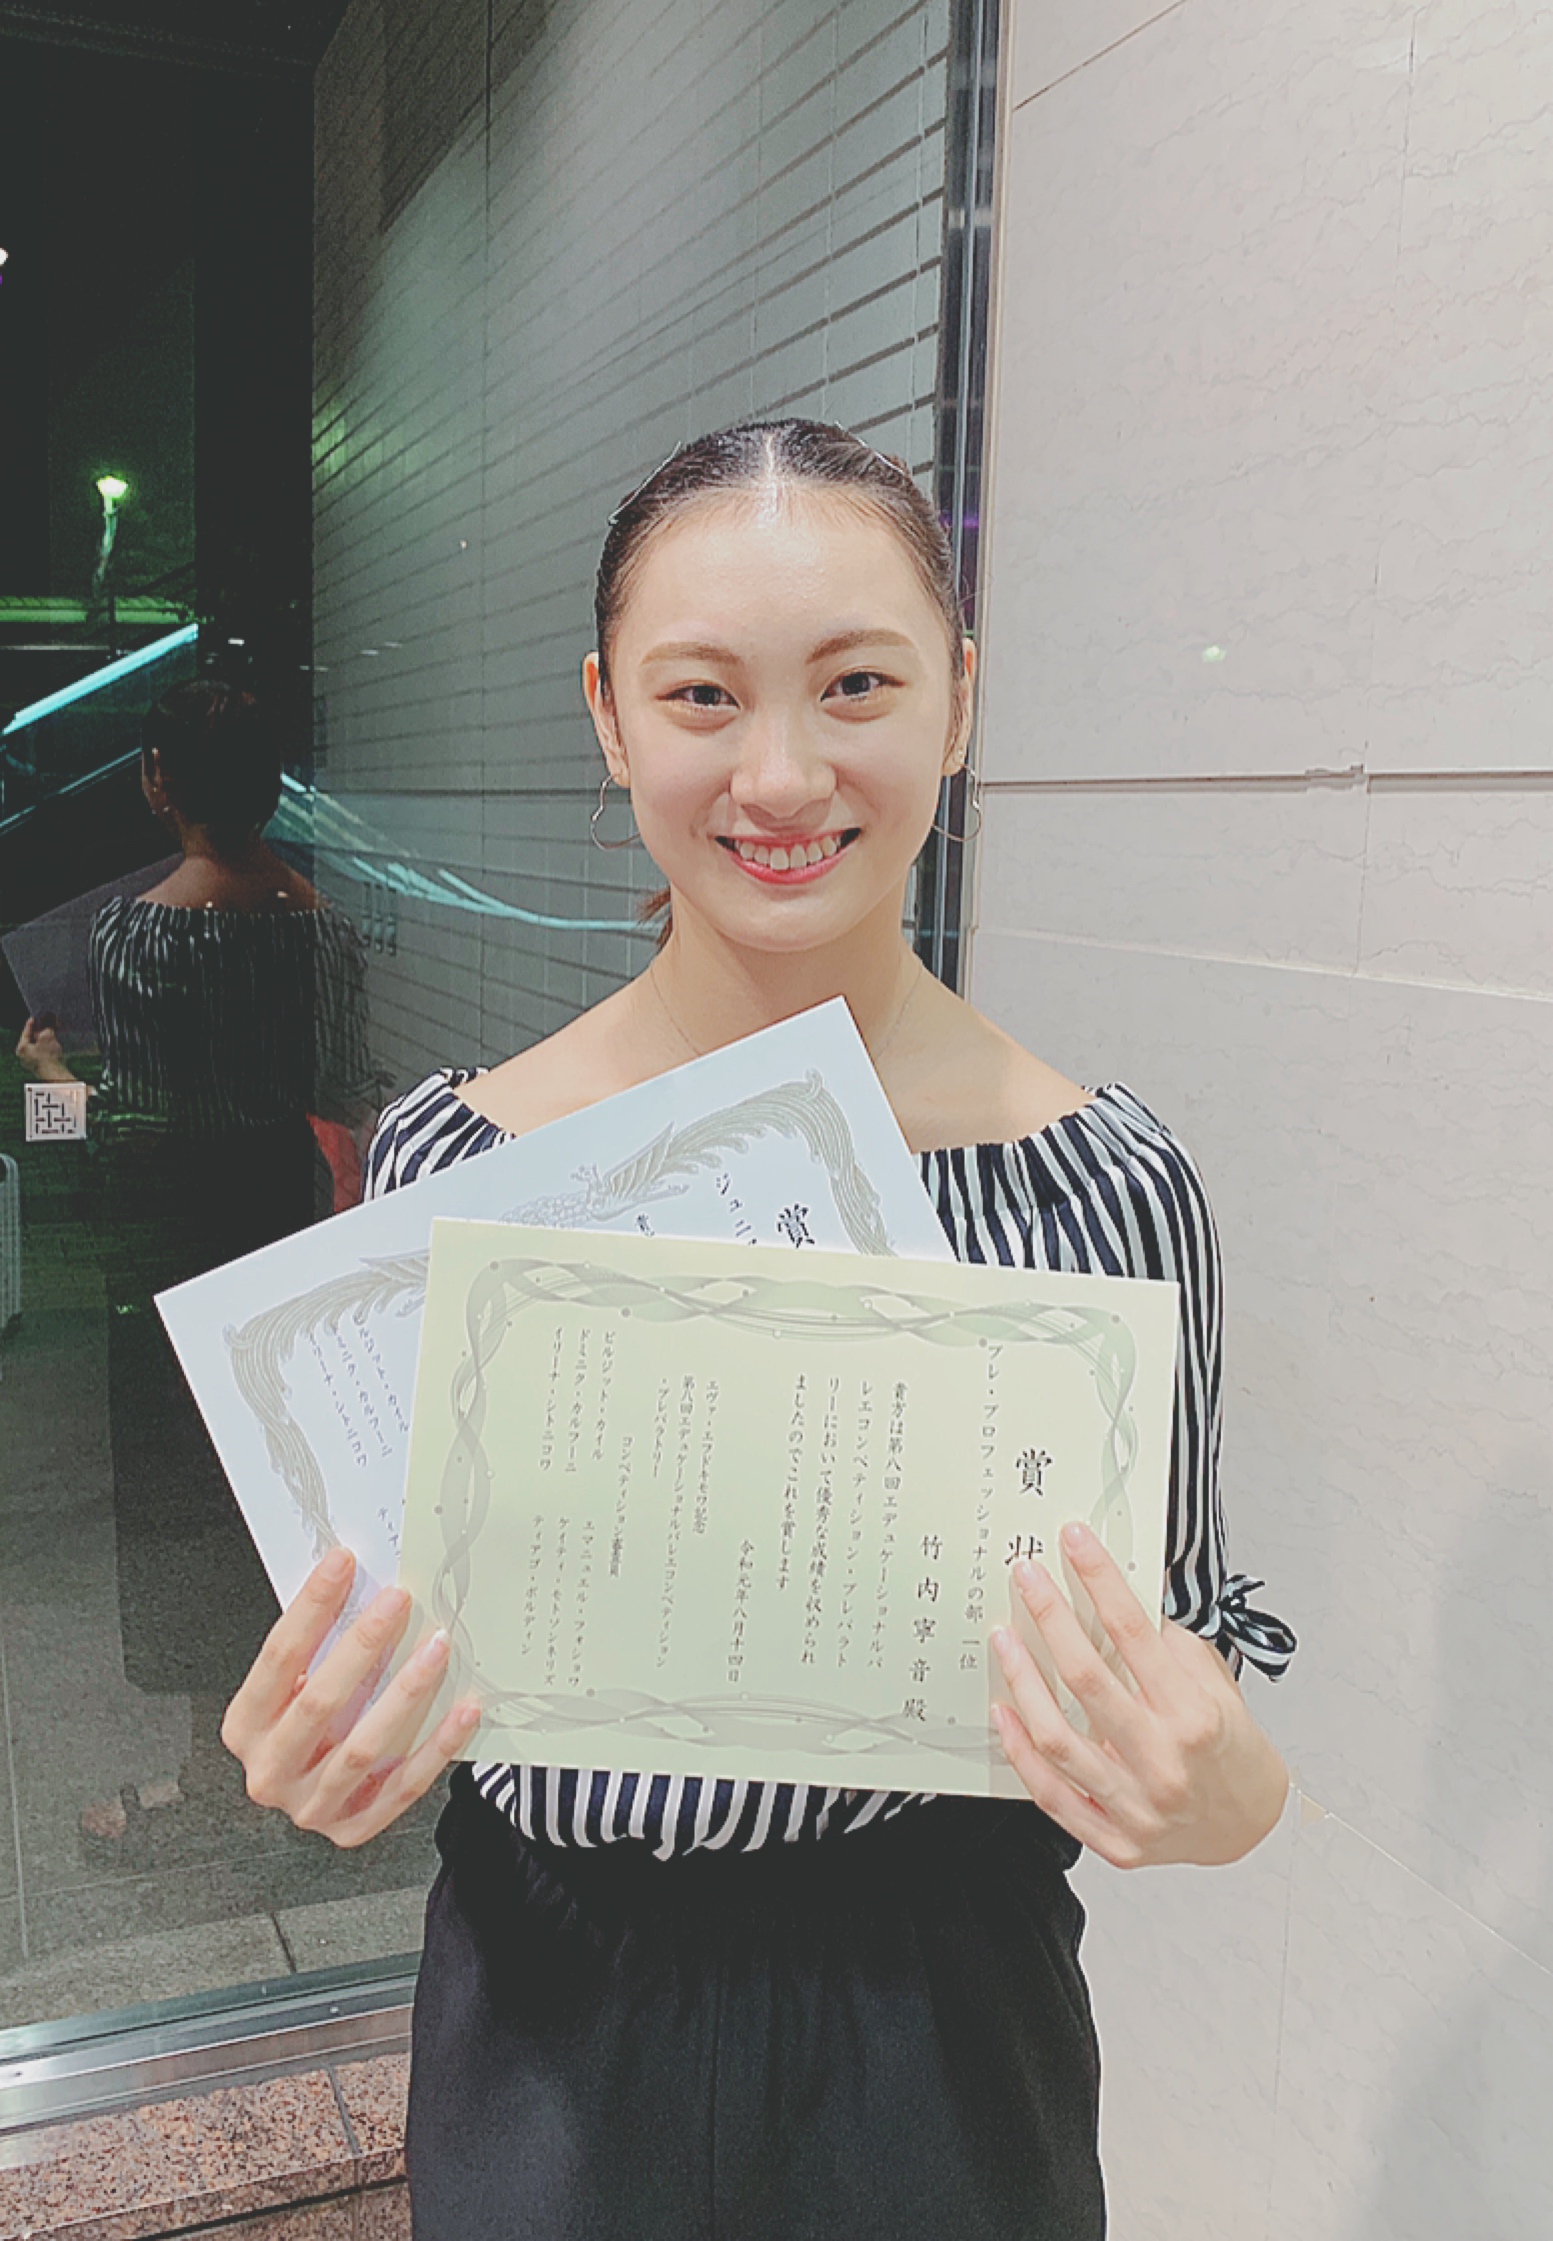 賞状
プレ・プロフェッショナルの部 一位
竹内寧音 殿
貴方は第八回エデュケーショナルバ
レエコンペティション・プレパラト
リーにおいて優秀な成績を収められ
ましたのでこれを賞します
令和元年八月十四日
エヴァ・エフドキモワ記念
第八回エデュケーショナルバレエコンペティション
・プレパラトリー
コンペティション審査員
ビルジット・カイル
エマニュエル・フォショワ
ドミニク・カルフーニ
ケイティ・モトソンネリズ
イリーナ・シトニコワ
ティアゴ・ボルディン
賞
ジュニ